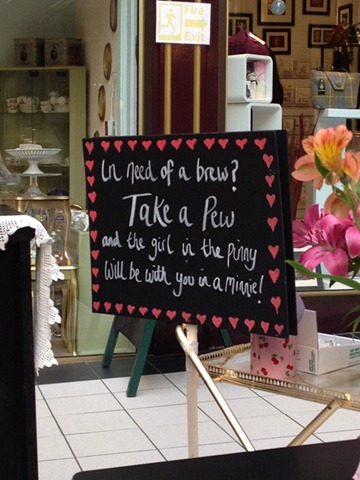 Fire
Exit
In need of a brew?
Take a Pew
and the girl in the pinny
will be with you in a minnie!